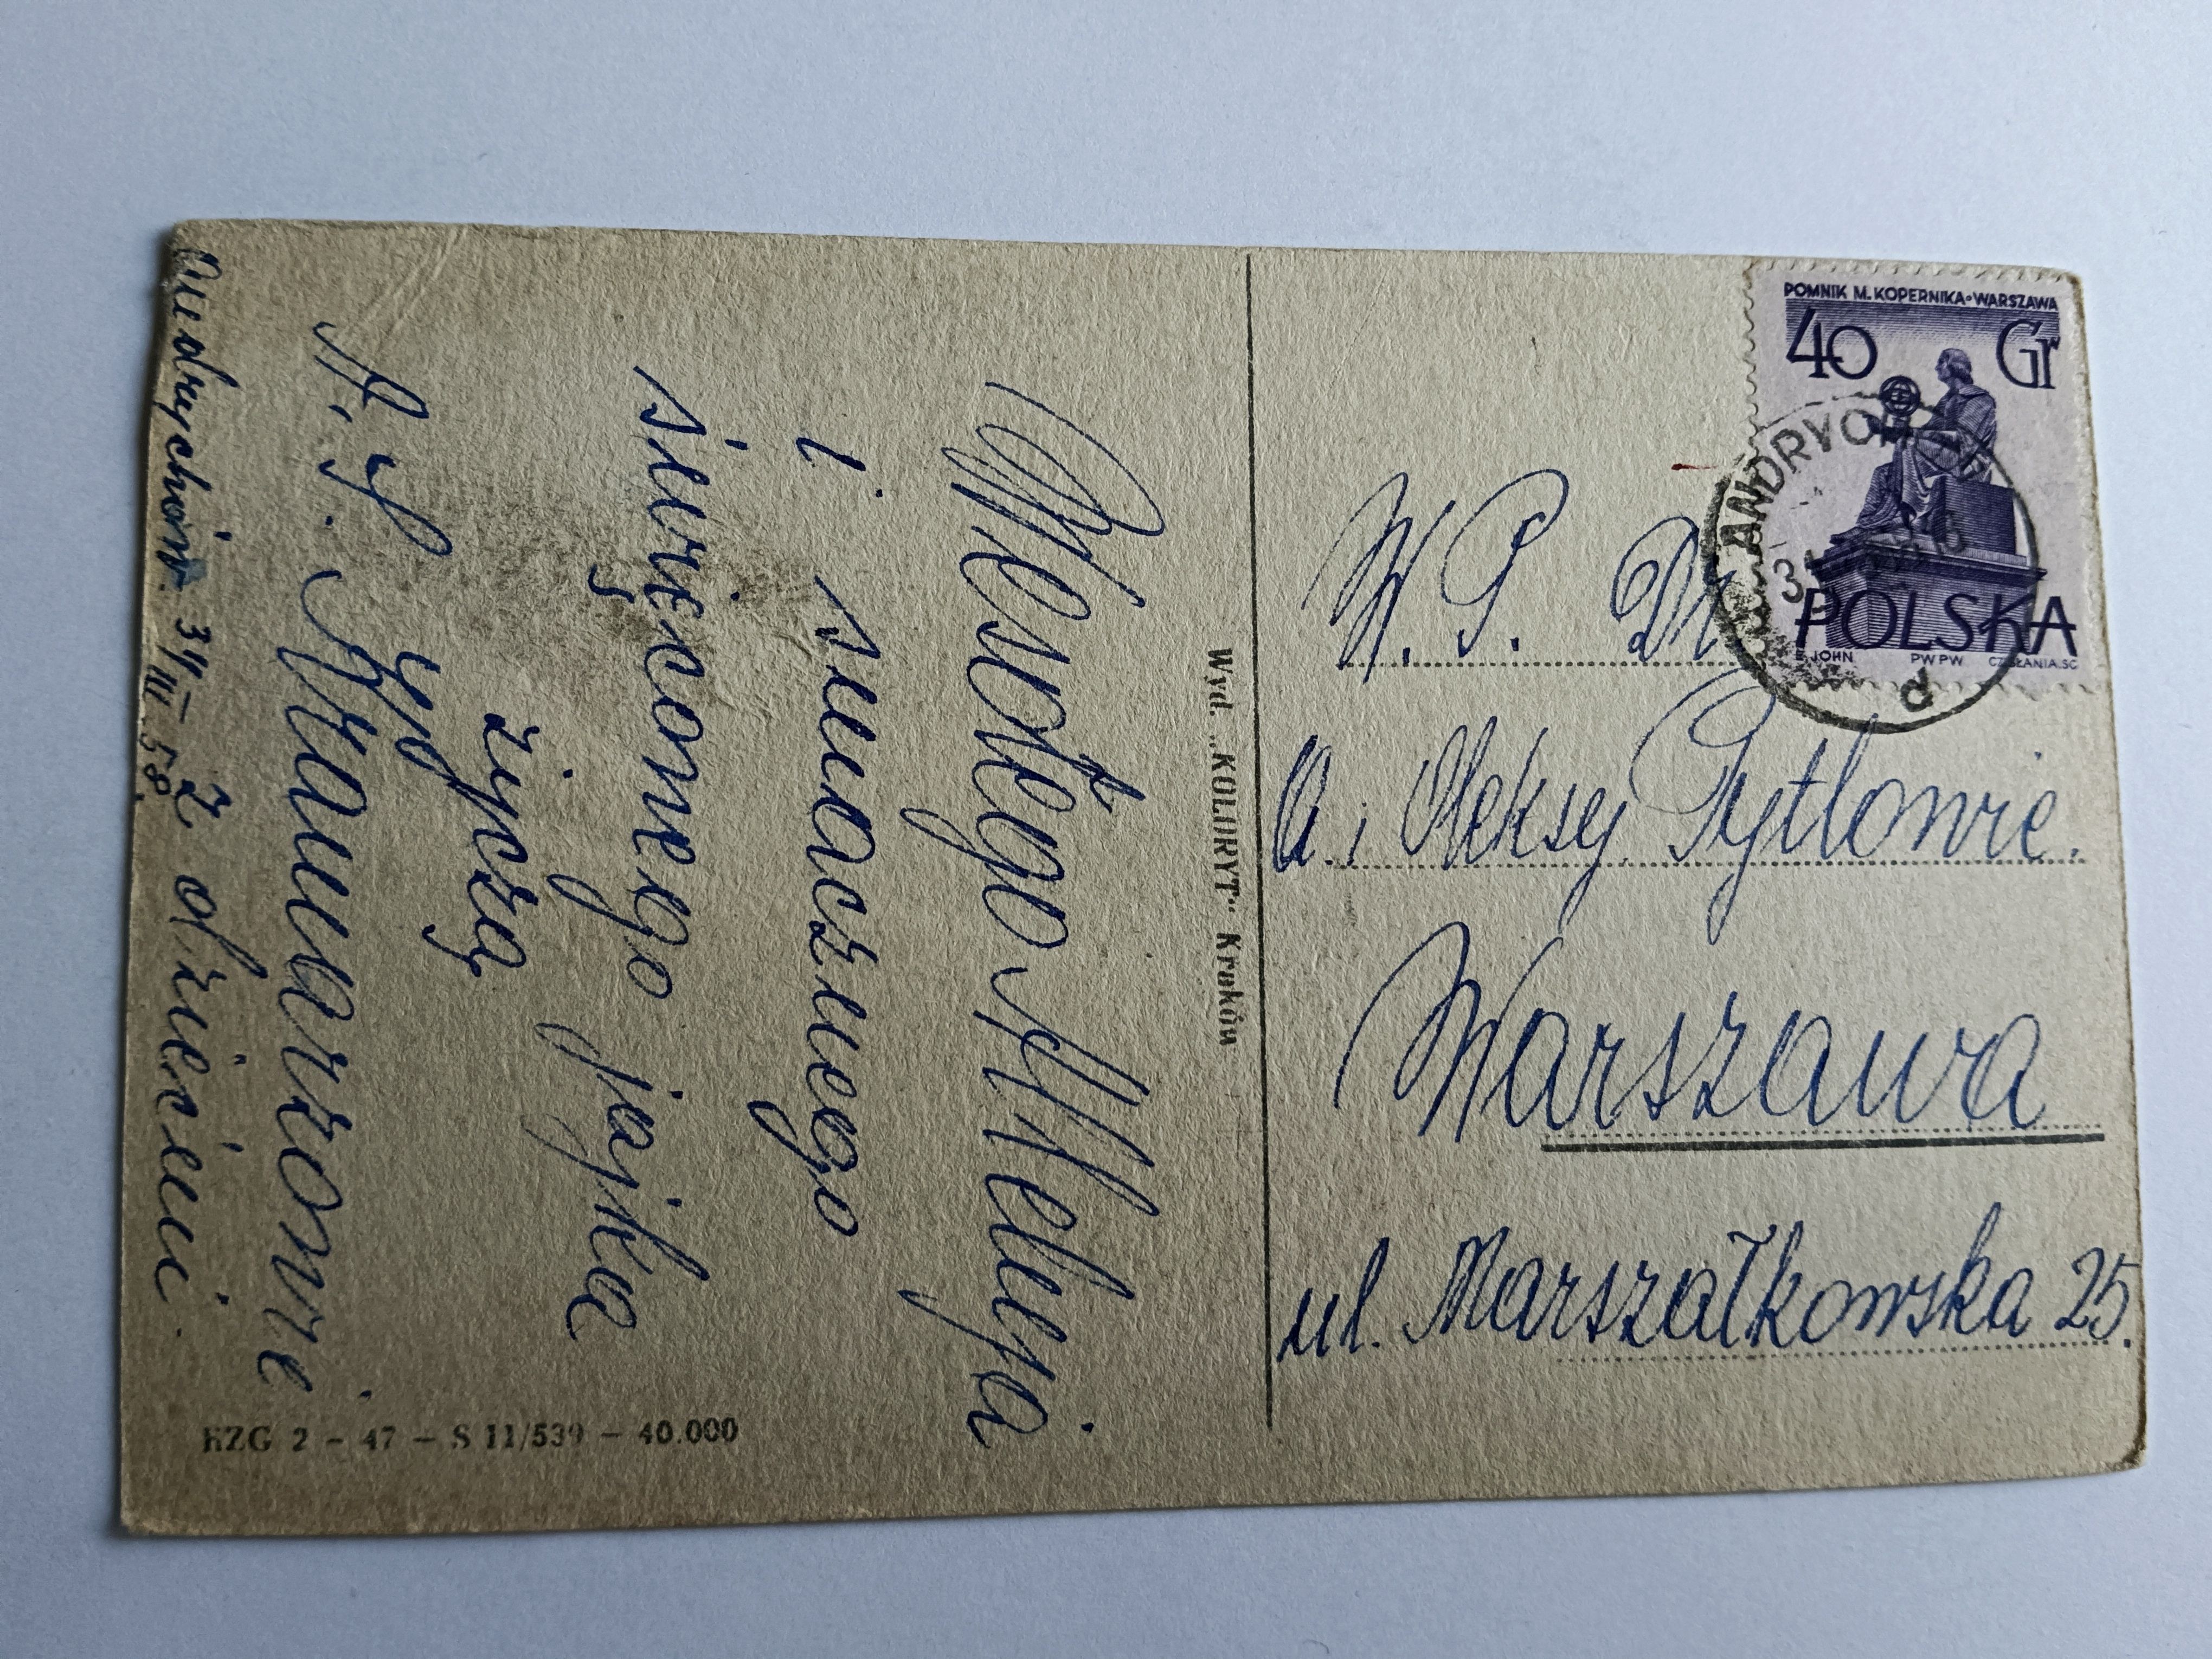 Wesołego Alleluja
i smacznego
święconego jajka
życzą
Krawarzowie.
z dziećmi.
Andrychów 31/III – 58.
RZG 2 – 47 – S 11/539 – 40.000
Wyd. „KOLORYT" Kraków
POMNIK M. KOPERNIKA • WARSZAWA
40 Gr
POLSKA
S. JOHN PWPW CZ. SŁANIA. SC
ANDRYCH
W. P. Dr
A. i Oleksy Pytlowie.
Warszawa
ul. Marszałkowska 25.